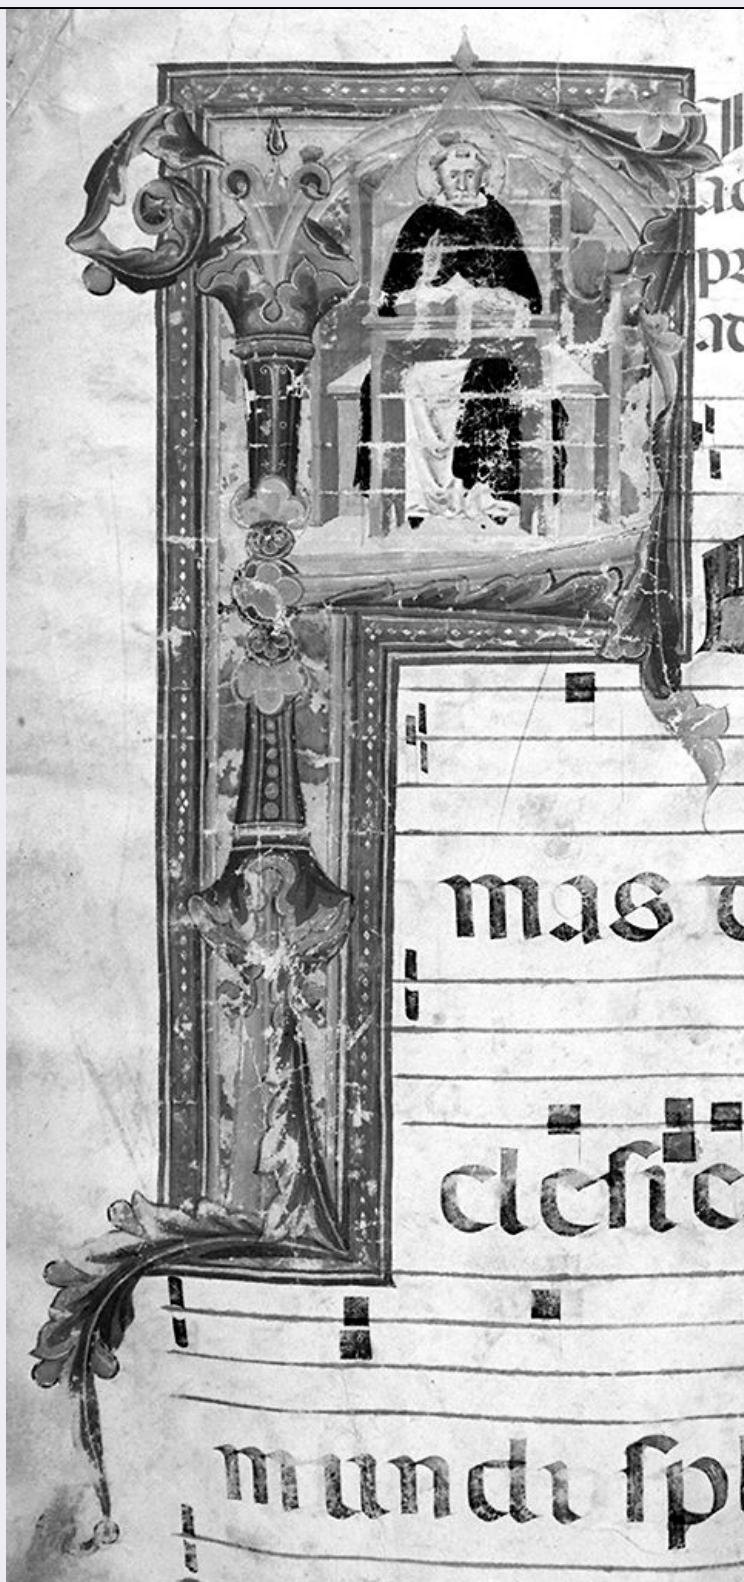 mas d
clesie
mundi spl